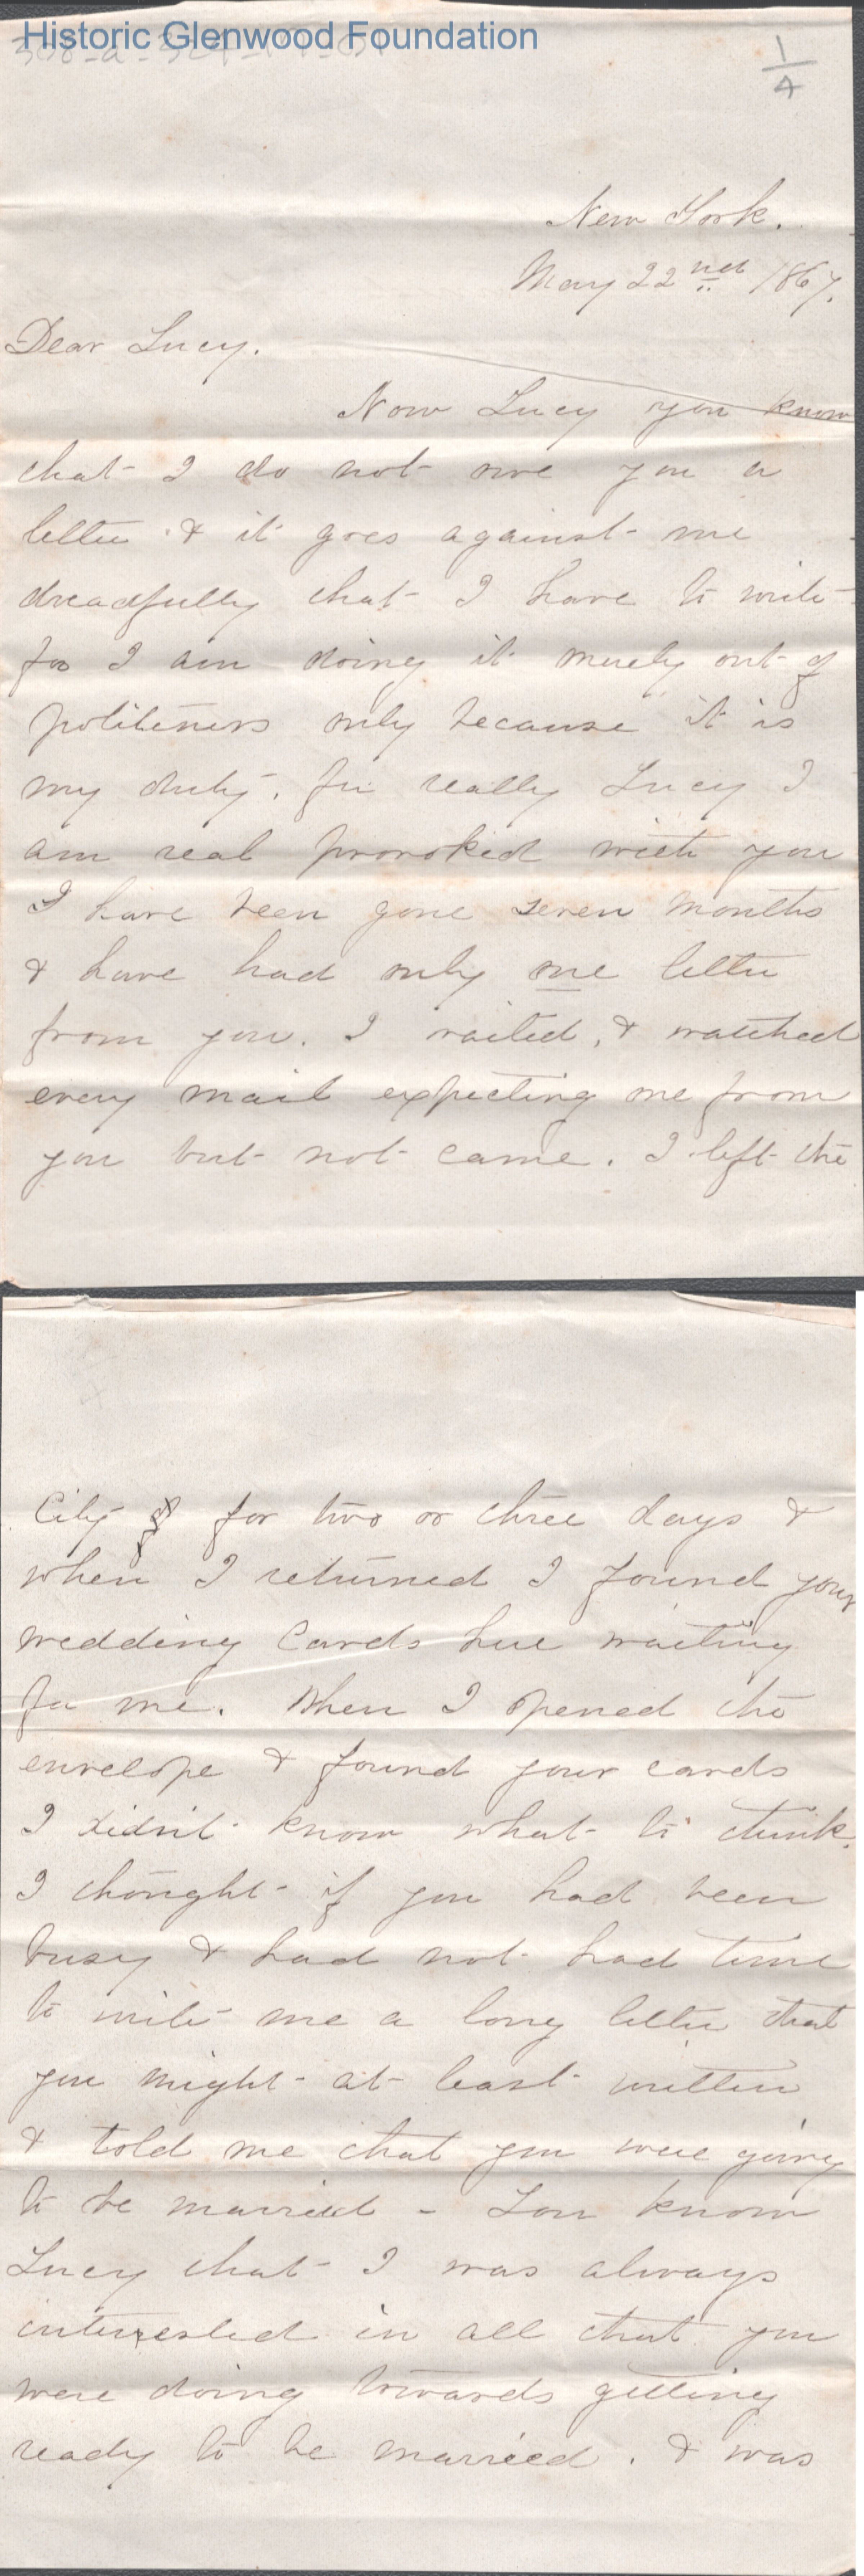 Historic Glenwood Foundation
1/4
New York.
May 22nd 1867.
Dear Lucy.
Now Lucy you know
that I do not owe you a
letter & it goes against me
dreadfully that I have to write
for I am doing it merely out of
politeness only because it is
my duty. for really Lucy I
am real provoked with you
I have been gone seven months
& have had only one letter
from you. I waited, & watched
every mail expecting one from
you but not came. I left the
City for two or three days &
when I returned I found your
wedding Cards here waiting
for me. When I opened the
envelope & found your cards
I didn't know what to think.
I thought if you had been
busy & had not had time
to write me a long letter that
you might at least written
& told me that you were going
to be married - You know
Lucy that I was always
interested in all that you
were doing towards getting
ready to be married. & was